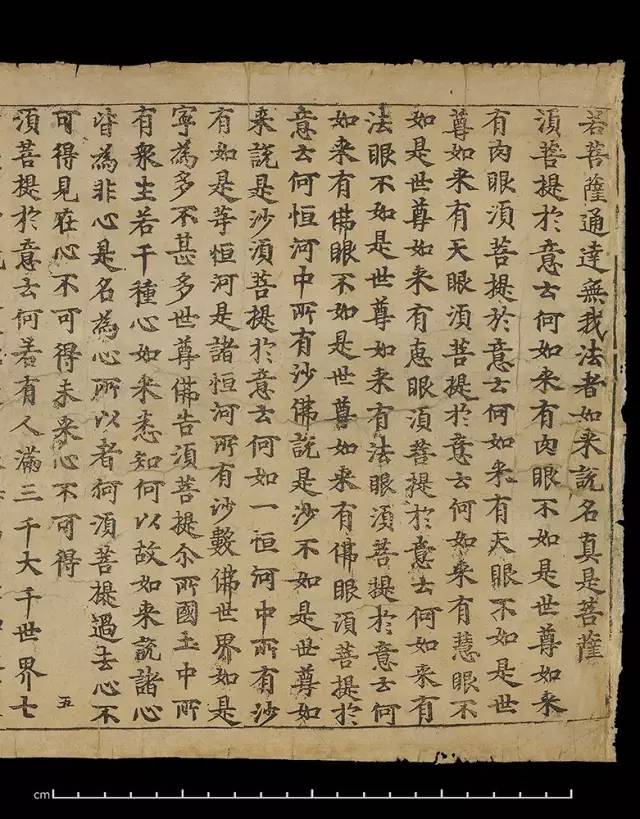 若菩薩通達無我法者如来說名真是菩薩
湏菩提於意云何如来有肉眼不如是世尊如来
有肉眼湏菩提於意云何如来有天眼不如是世
尊如来有天眼湏菩提於意云何如来有慧眼不
如是世尊如来有恵眼湏菩提於意云何如来有
法眼不如是世尊如来有法眼湏菩提於意云何
如来有佛眼不如是世尊如来有佛眼湏菩提於
意云何恒河中所有沙佛說是沙不如是世尊如
来說是沙湏菩提於意云何如一恒河中所有沙
有如是等恒河是諸恒河所有沙數佛世界如是
寧為多不甚多世尊佛告湏菩提尒所國玉中所
有衆生若干種心如来悉知何以故如来說諸心
皆為非心是名為心所以者何湏菩提過去心不
可得見在心不可得未来心不可得 五
湏菩提於意云何若有人滿三千大千世界七
cm